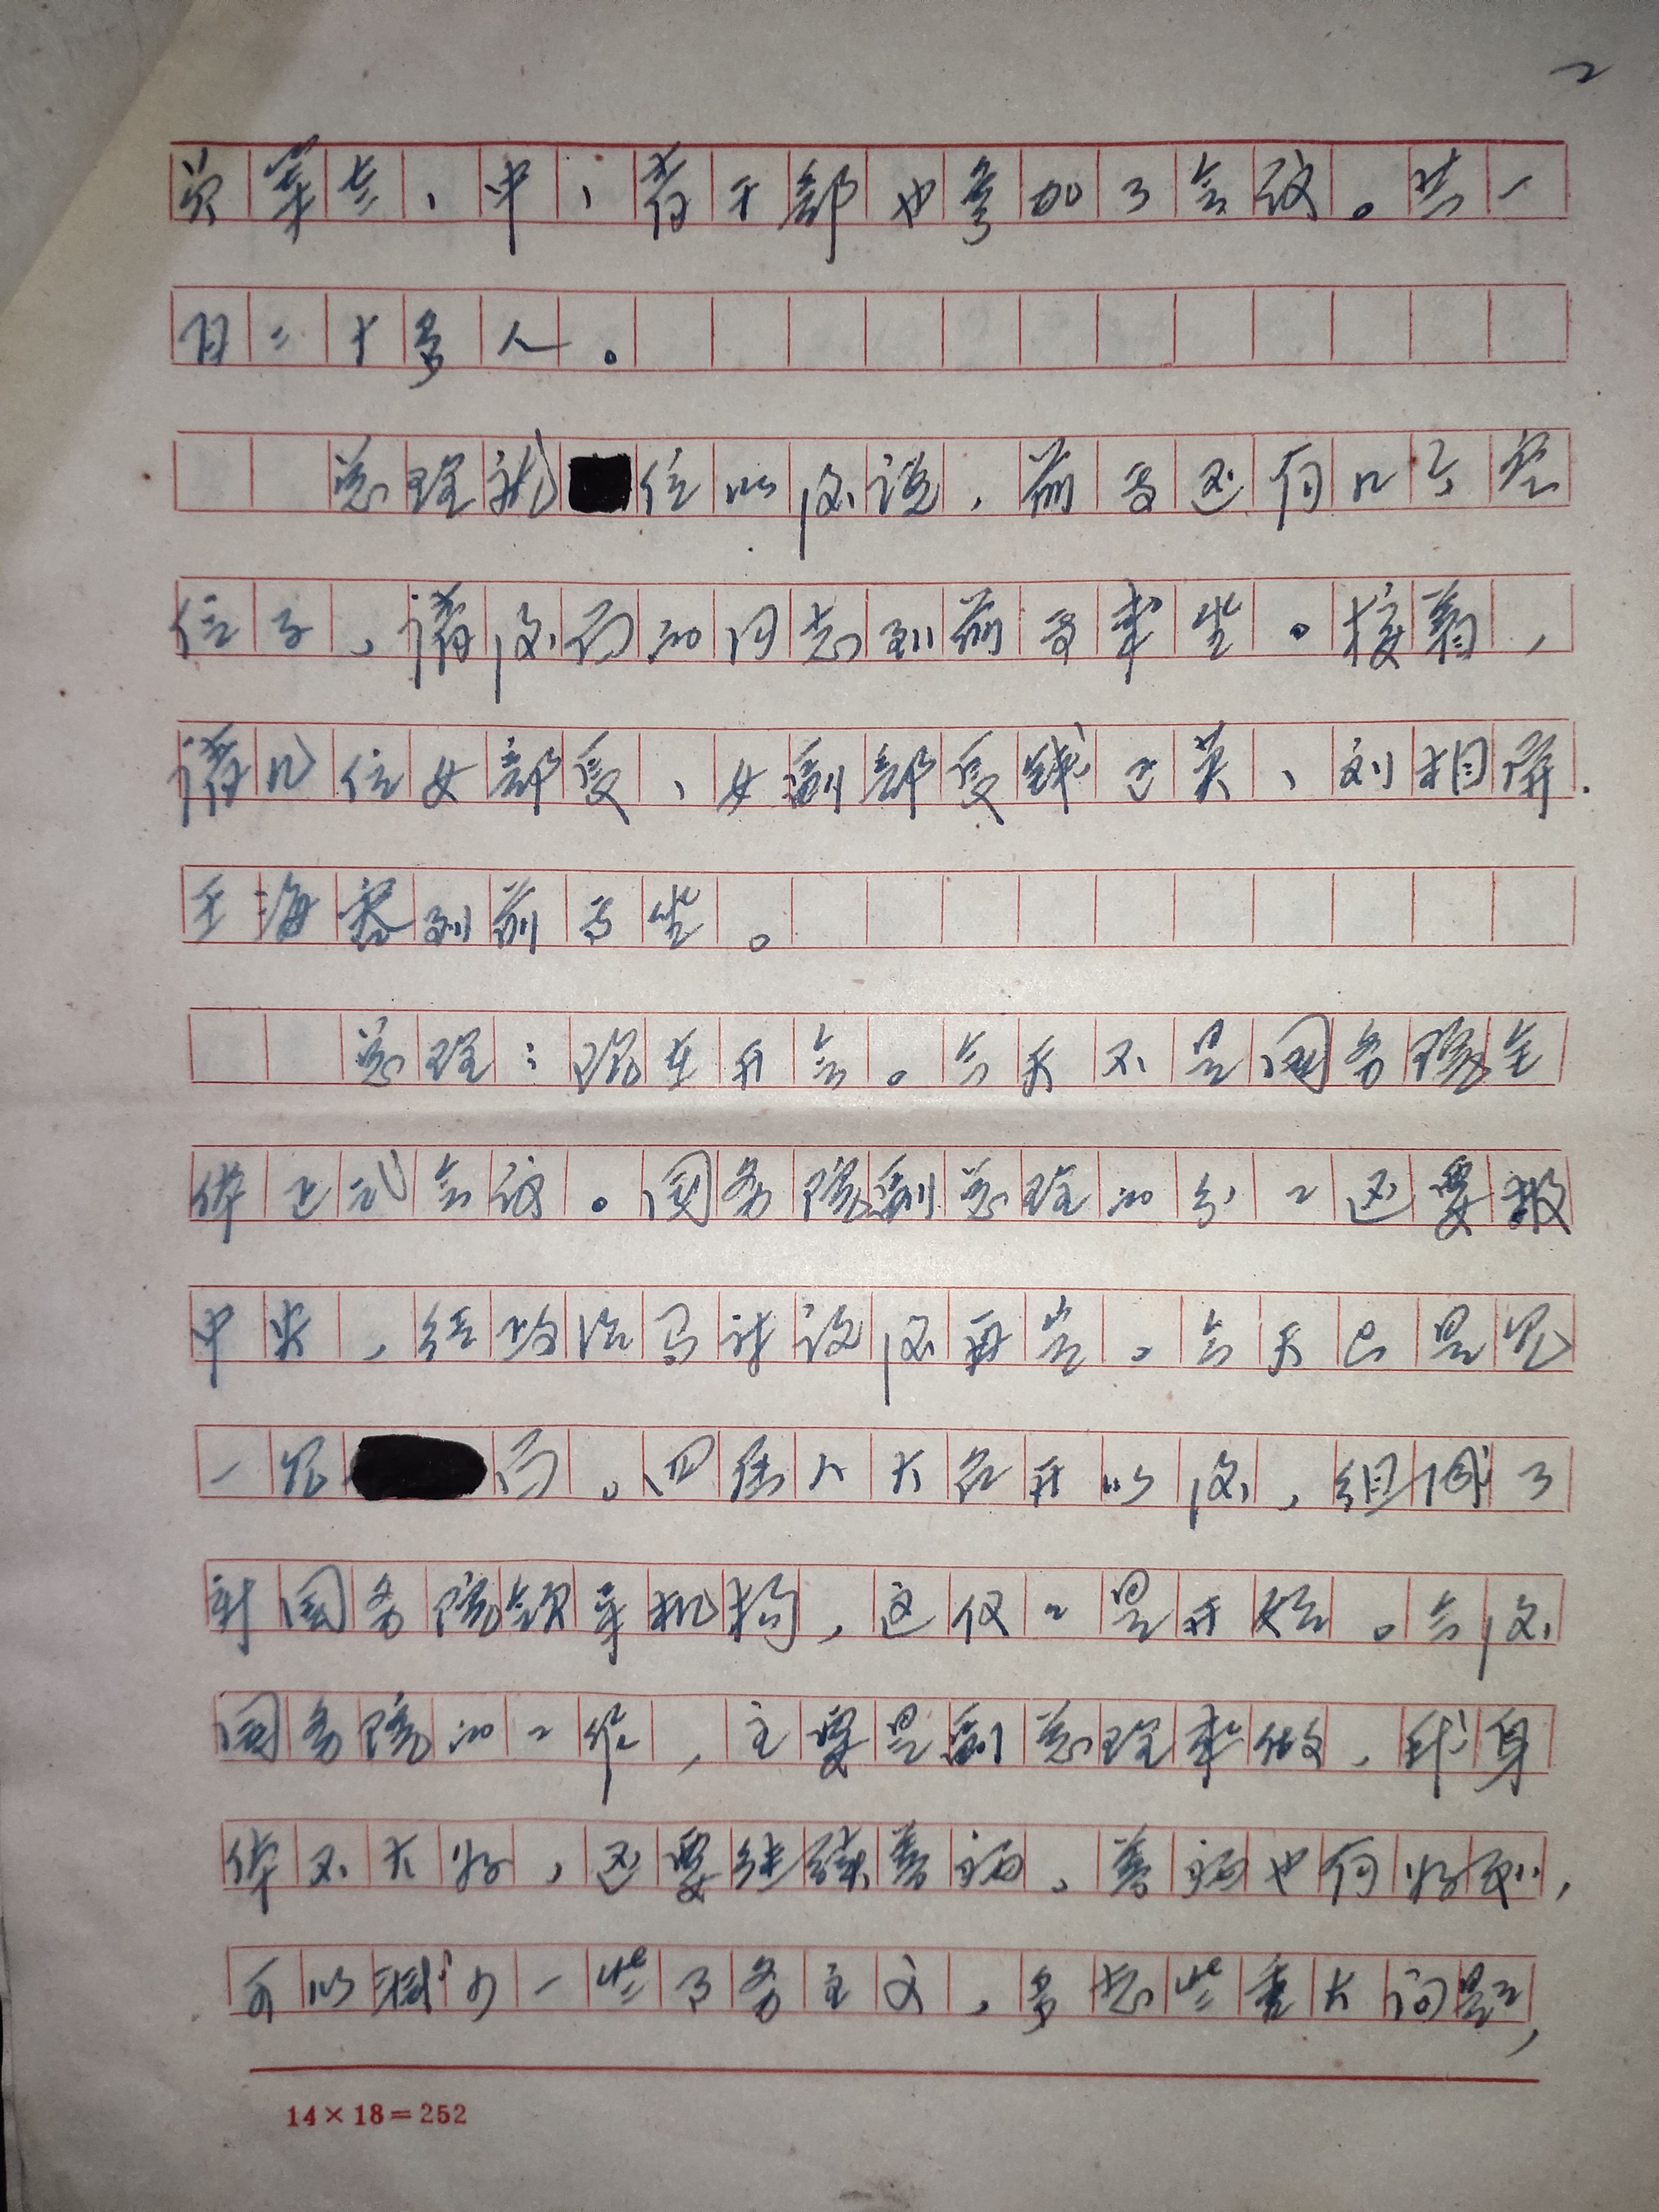 2
负责者、中、青干部也参加了会议。共一
百二十多人。
总理就位以后说，前面还有几个空
位子，请后面的同志到前面来坐。接着，
请几位女部长、女副部长钱正英、刘湘屏.
王海容到前面坐。
总理：现在开会。今天不是国务院全
体正式会议。国务院副总理的分工还要报
中央，经政治局讨论后再定。今天只是见
一见面。四届人大召开以后，组成了
新国务院领导机构，这仅仅是开始。今后
国务院的工作，主要是副总理来做，我身
体不大好，还要继续养病。养病也有好处，
可以减少一些事务主义，多想些重大问题，
14×18=252